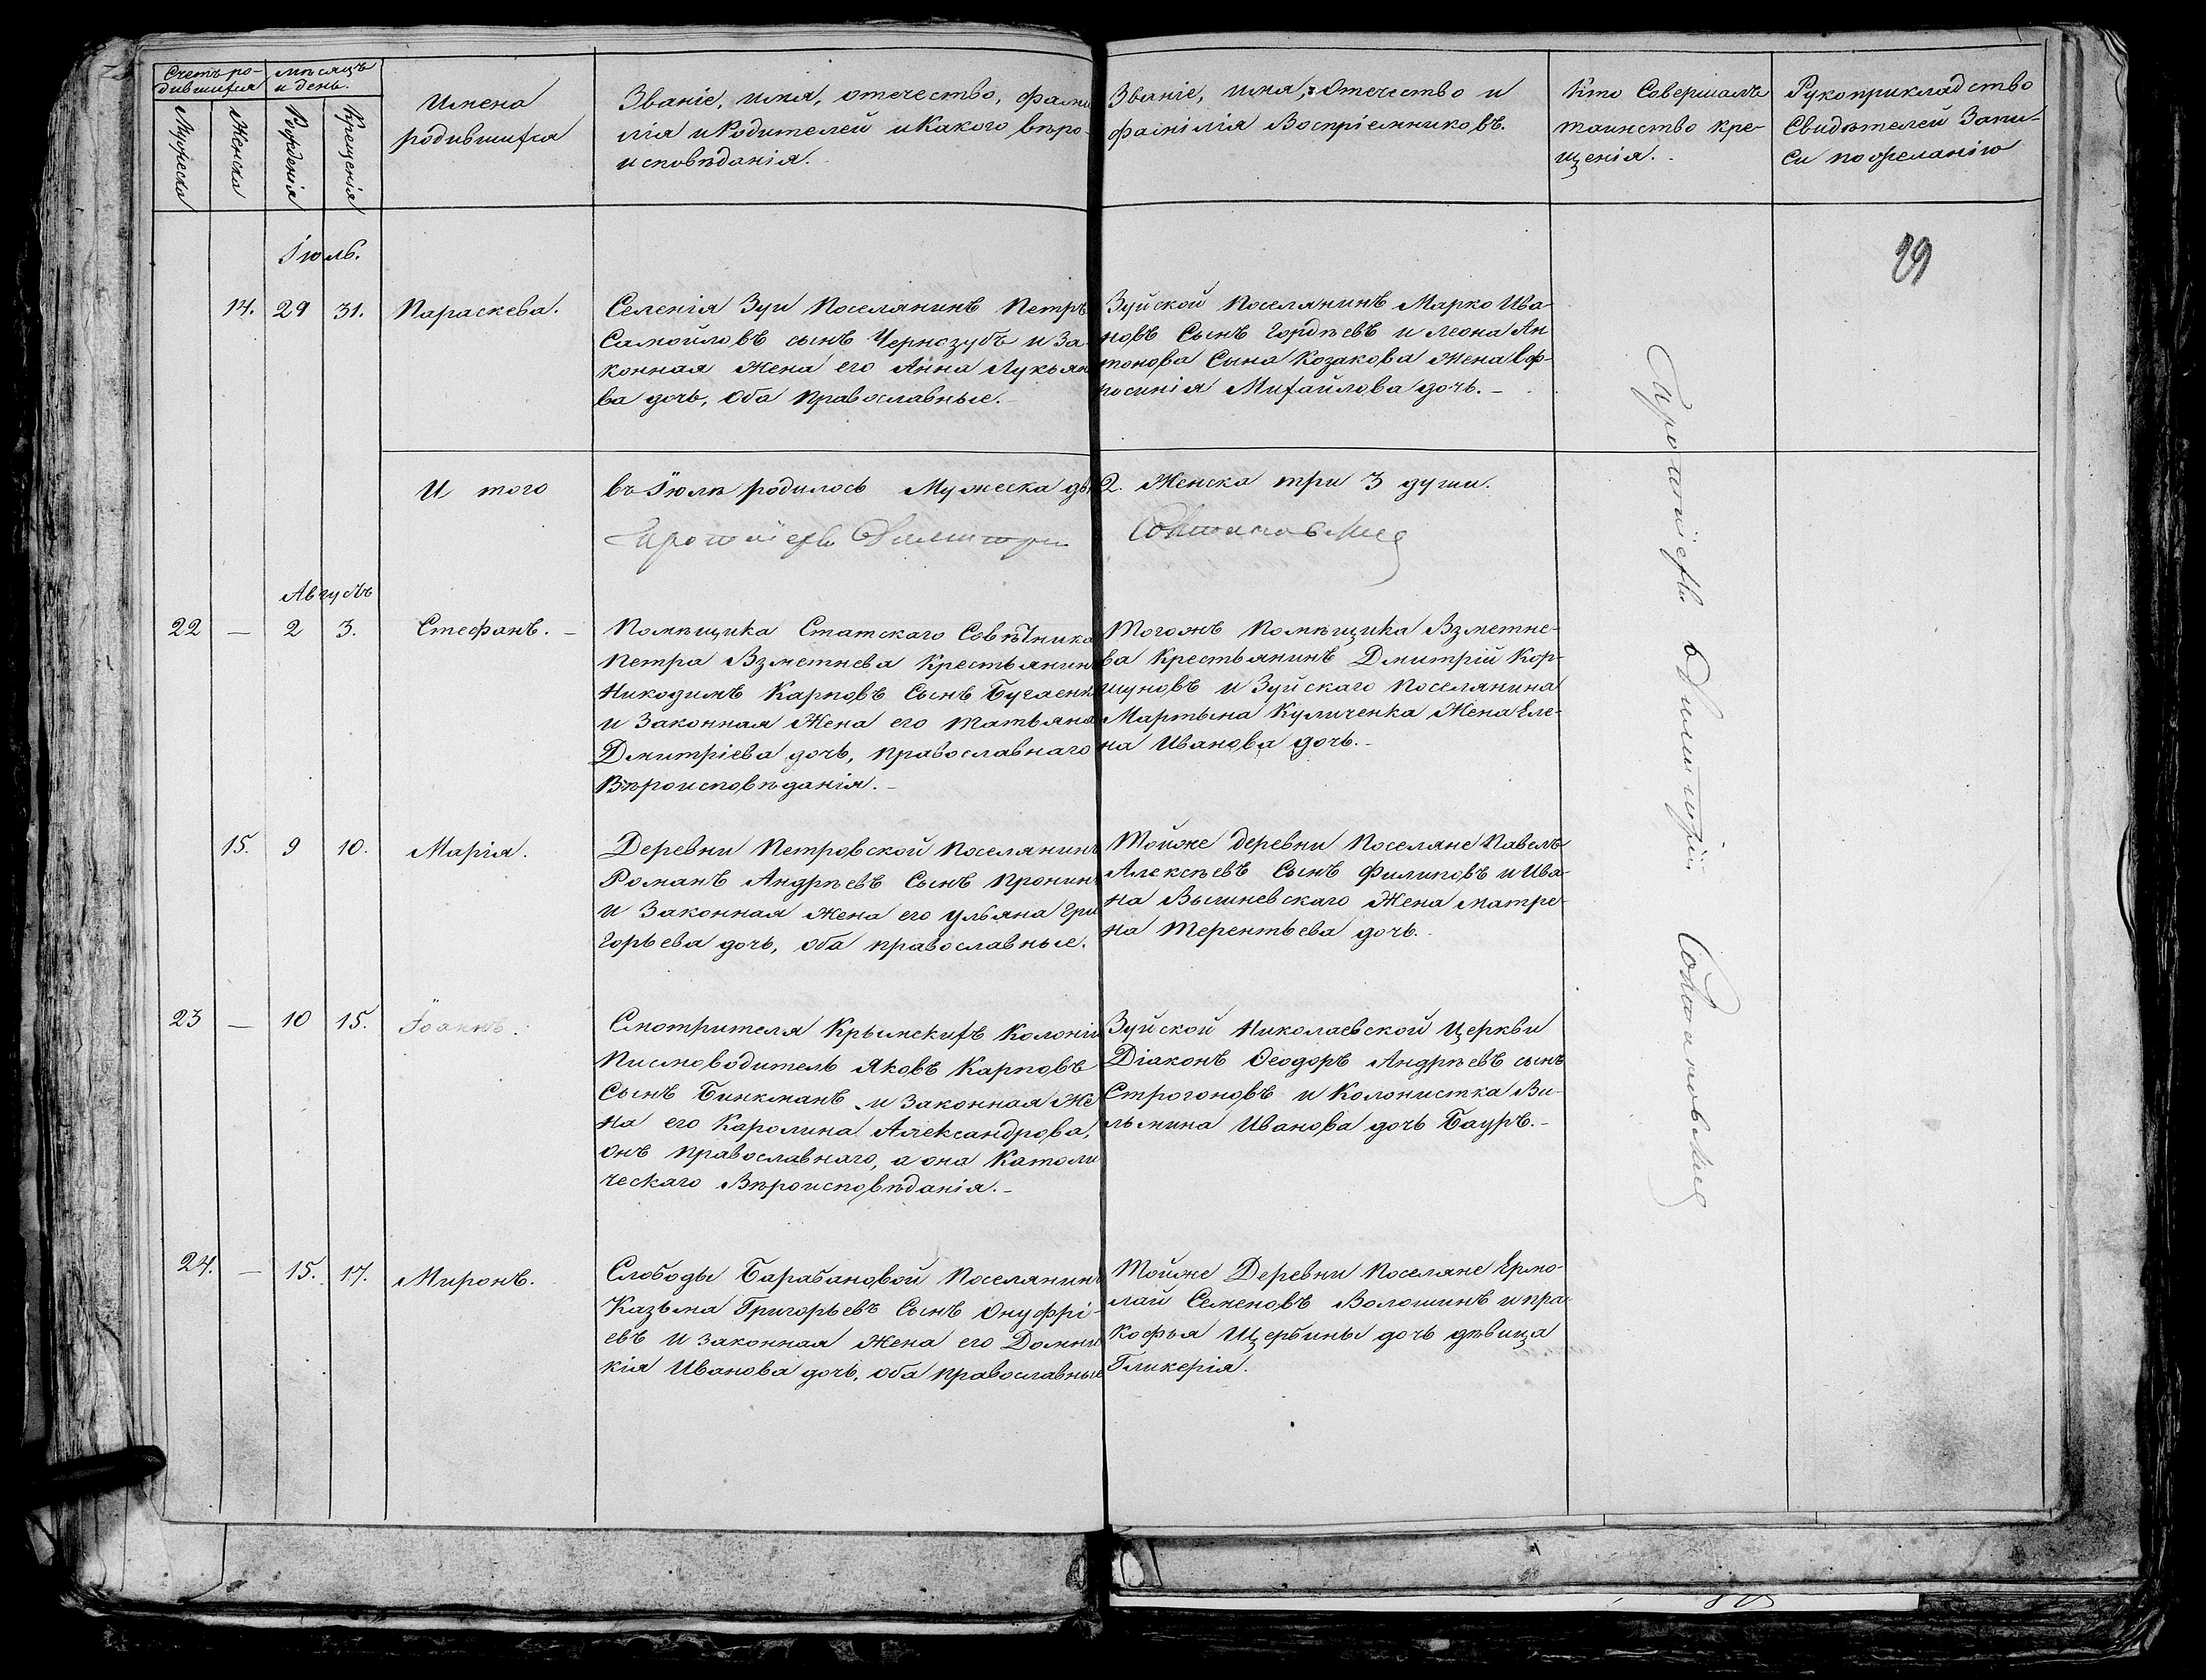 Счетъ ро-
дившихся
мѣсяцъ
и день.
Мужеска
Женска
Рожденія
Крещенія
Имена
родившихся
Званіе, имя, отечество, фами
лія и Родителей и Какого вѣро-
исповѣданія.
Званіе, имя, Отечество и
фамілія Воспріемниковъ.
Кто Совершалъ
таинство кре-
щенія.
Рукоприкладство
Свидѣтелей Запи-
си по желанію
29
Іюль.
14. 29 31. Параскева.
Селенія Зуи Поселянинъ Петръ
Самойловъ сынъ Чернозубъ и За-
конная Жена его Анна Лукьян
ва дочь, Оба Православные.-
Зуйской Поселянинъ Марко Ива-
новъ Сынъ Гордѣевъ и Леона Ан
тонова Сына Козакова Жена Еф-
росинія Михайлова дочь.-
И того въ Іюлѣ родилось Мужеска дв
2. Женска три 3 души.
Протоіерей Димитрий
Августъ
22 — 2 3. Стефанъ.-
Помѣщика Статскаго Совѣтника
Петра Взметнева Крестьянинъ
Никодимъ Карповъ Сынъ Бугаенк
и Законная Жена его Татьяна
Дмитріева дочь, Православнаго
Вѣроисповѣданія.-
Тогожъ Помѣщика Взметне-
ва Крестьянинъ Дмитрій Кор-
шуновъ и Зуйскаго Поселянина
Мартына Куличенка Жена Еле-
на Иванова дочь.-
15. 9 10. Марія.
Деревни Петровской Поселянинъ
Романъ Андрѣевъ Сынъ Пронинъ
и Законная Жена его Ульяна Гри
горьева дочь, Оба Православные.
Тойже деревни Поселяне Павелъ
Алексѣевъ Сынъ Филиповъ и Ива-
на Вышневскаго Жена Матре-
на Терентьева дочь.
23 — 10 15. Іоаннъ.
Смотрителя Крымскихъ Колоній
Письмоводитель Яковъ Карповъ
Сынъ Бинкманъ и Законная Же
на его Каролина Александрова,
онъ Православнаго, а она Католи
ческаго Вѣроисповѣданія.-
Зуйской Николаевской Церкви
Діаконъ Ѳеодоръ Андрѣевъ сынъ
Строгоновъ и Колонистка Ви-
льмина Иванова дочь Бауръ.-
24. — 15. 17. Миронъ.
Слободы Барабановой Поселянинъ
Казьма Григорьевъ Сынъ Онуфрі-
евъ и Законная Жена его Домни
кія Иванова дочь, Оба Православные
Тойже Деревни Поселяне Ермо-
лай Семеновъ Волошинъ и Пра-
кофья Щербины дочь дѣвица
Гликерія.
Протоіерей Димитрій